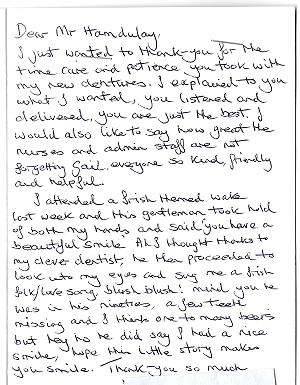 Dear Mr Hamdulay,
I just wanted to thank-you for the
time care and patience you took with
my new dentures. I explained to you
what I wanted, you listened and
delivered, you are just the best, I
would also like to say how great the
nurses and admin staff are not
forgetting Gail, everyone so kind, friendly
and helpful.
I attended a Irish themed wake
last week and this gentleman took hold
of both my hands and said you have a
beautiful smile Ah! I thought thanks to
my clever dentist, he then proceeded to
look into my eyes and sug me a Irish
folk/love song, blush blush! mind you he
was in his nineties, a few teeth
missing and I think one to many beers
but hey ho he did say I had a nice
smile, hope this little story makes
you smile. Thank-you so much